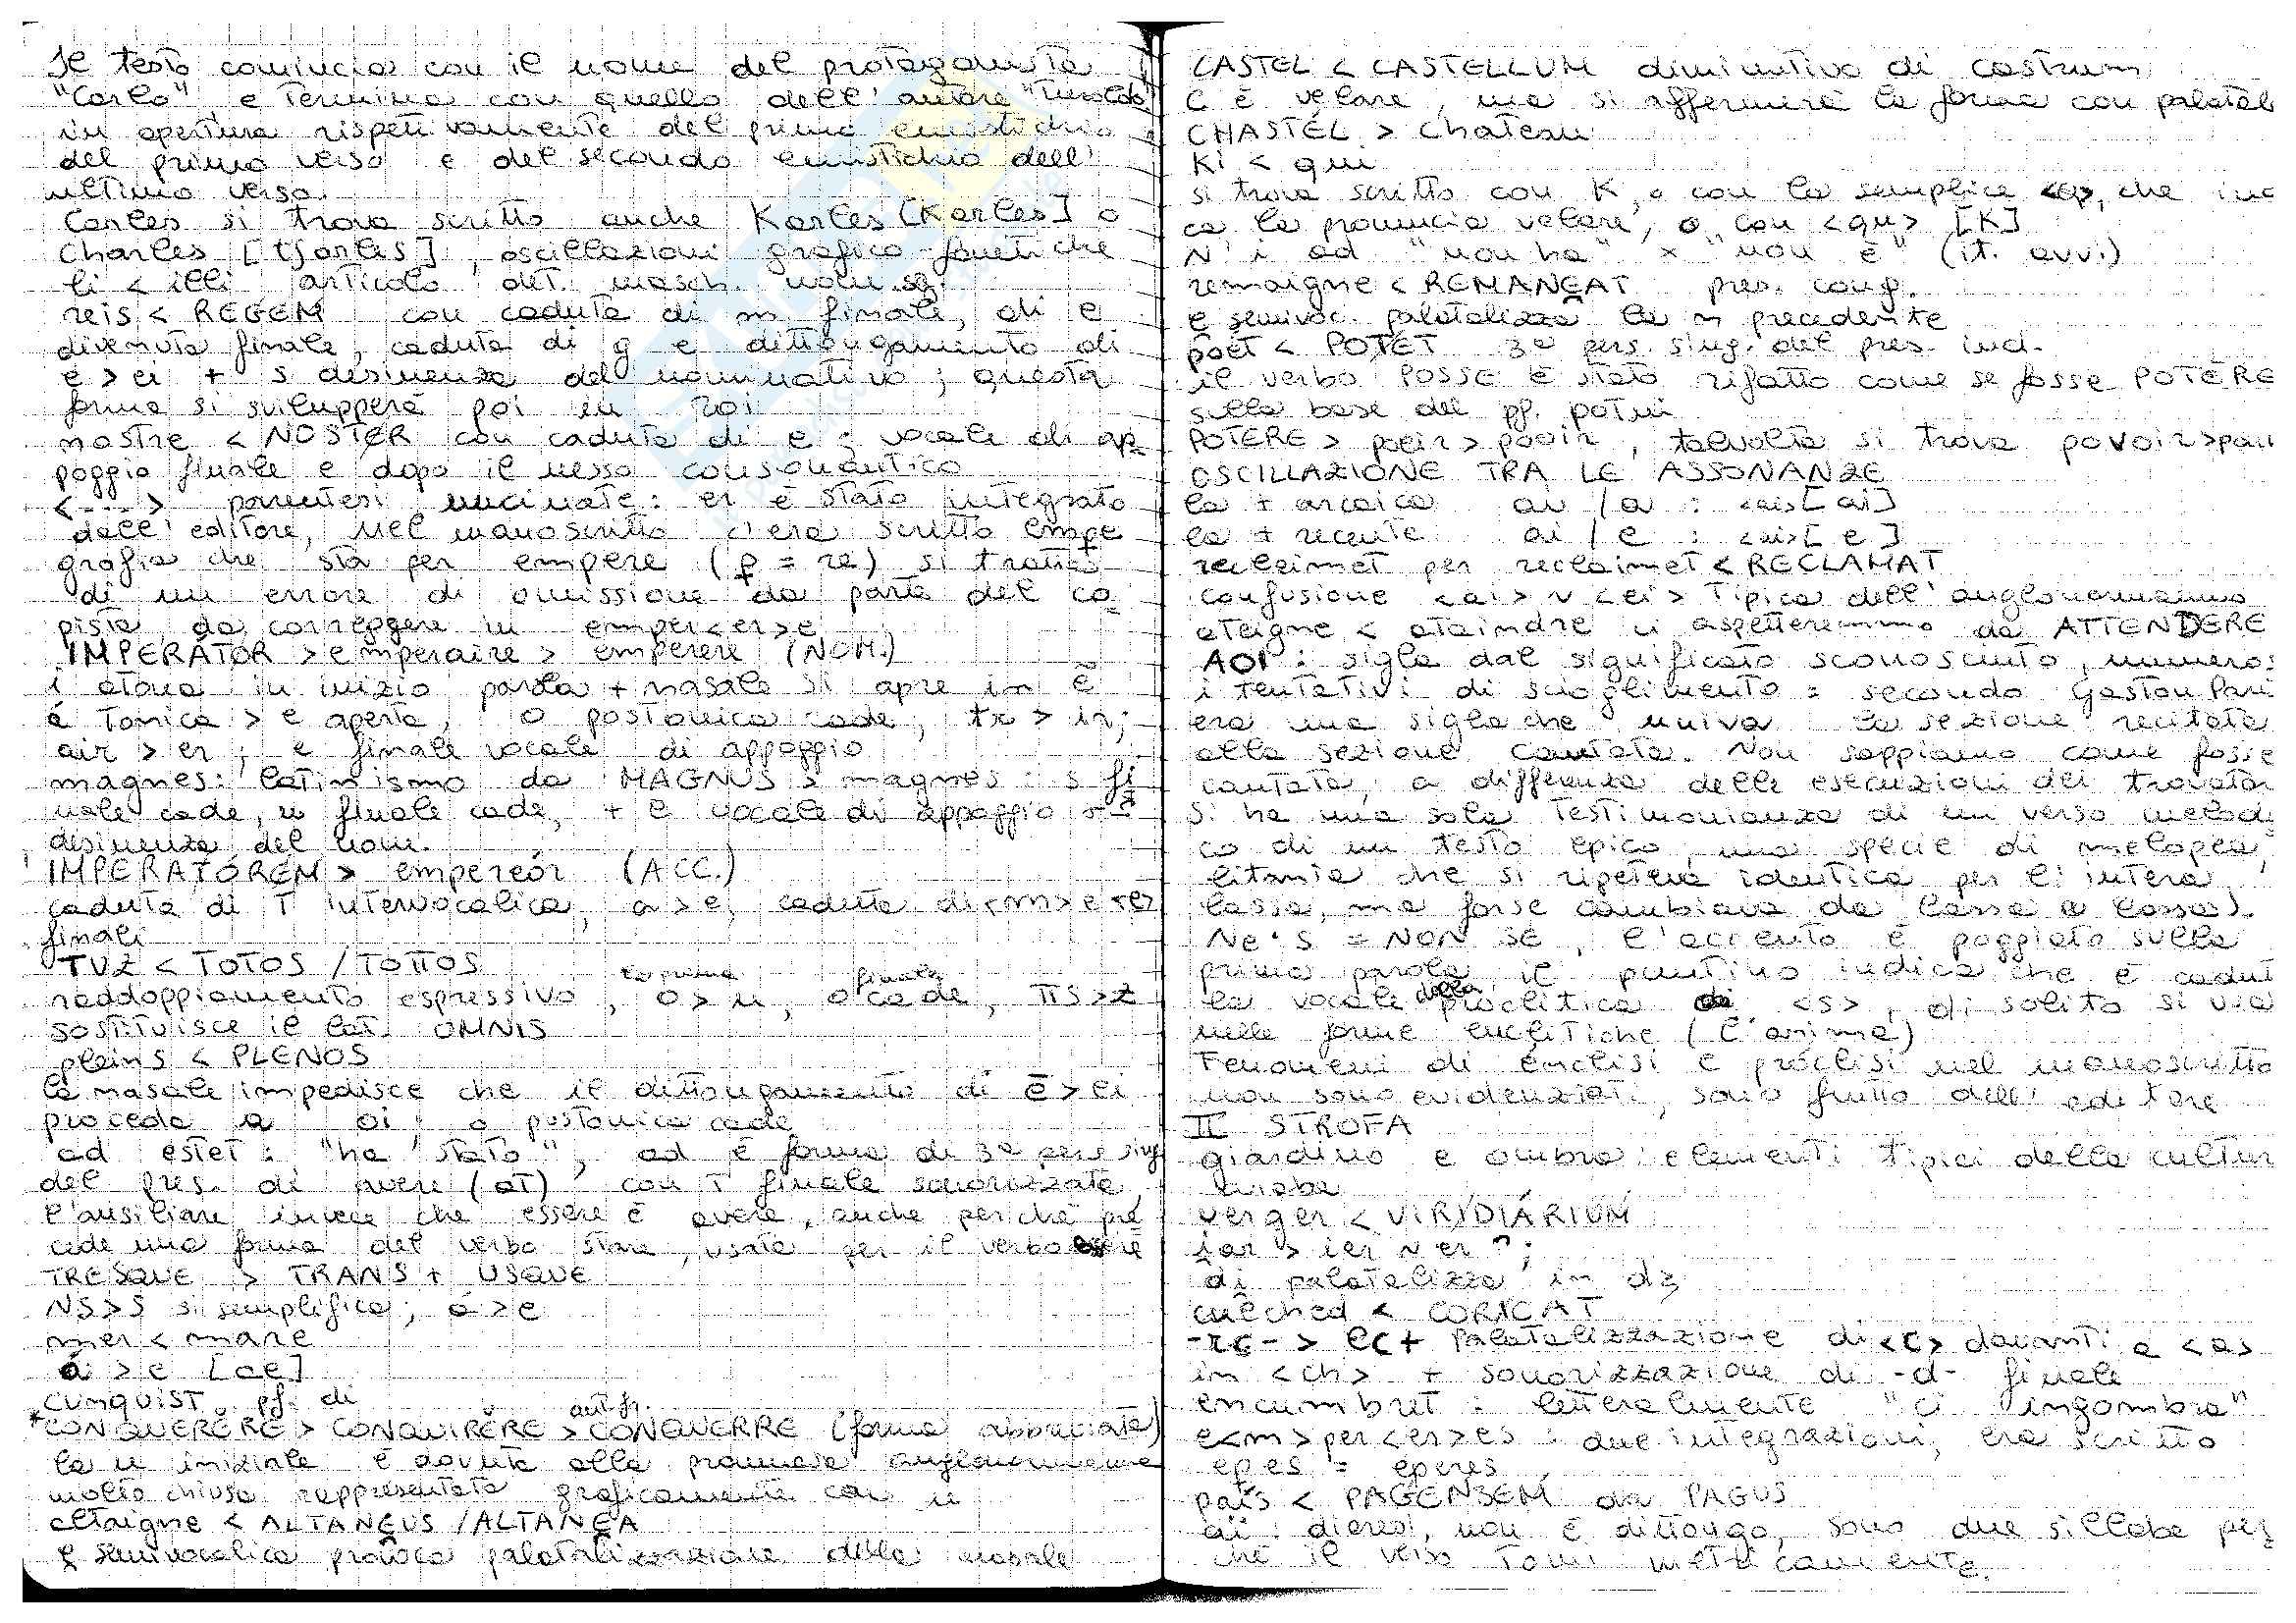 Il testo comincia con il nome del protagonista
"Carlo" e termina con quello dell'autore "Turoldo"
in apertura rispettivamente del primo emistichio
del primo verso e del secondo emistichio dell'
ultimo verso.
Carles si trova scritto anche Karles [Karles] o
Charles [tʃarles], oscillazioni grafico-fonetiche
li < illi articolo det. masch. nom. sg.
reis < REGEM con caduta di m finale, di e
divenuta finale, caduta di g e dittongamento di
e > ei + s desinenza del nominativo; questa
forma si svilupperà poi in roi
nostre < NOSTER con caduta di e; vocale di ap-
poggio finale e dopo il nesso consonantico
<---> parentesi uncinate: er è stato integrato
dall'editore, nel manoscritto c'era scritto empe
grafia che sta per empere (p = re) si tratta
di un errore di omissione da parte del co-
pista da correggere in emper<er>e
IMPERÁTOR > emperaire > emperere (NOM.)
i atona in inizio parola + nasale si apre in ẽ
á tonica > e aperta, o postonica cade, tr > ir;
air > er; e finale vocale di appoggio
magnes: latinismo da MAGNUS > magnes: s fi-
nale cade, u finale cade, + e vocale di appoggio + s
desinenza del nom.
IMPERATÓREM > empereór (ACC.)
caduta di T intervocalica, a > e, caduta di <m> e <e>
finali
TUZ < TOTOS / TOTTOS
raddoppiamento espressivo, la prima o > u, o finale cade, tts > z
sostituisce il lat. OMNIS
pleins < PLENOS
la nasale impedisce che il dittongamento di ē > ei
proceda a oi; o postonica cade
ad estet: "ha stato", ad è forma di 3ª pers. sing.
del pres. di avere (at) con T finale sonorizzata,
l'ausiliare invece che essere è avere, anche perché pre-
cede una forma del verbo stare, usata per il verbo essere
TRESQUE > TRANS + USQUE
NS > S si semplifica; á > e
mer < mare
á > e [ae]
CUNQUIST pf. di
*CONQUERERE > CONQUIRĔRE > ant.fr. CONQUERRE (forma abbreviata)
la u iniziale è dovuta alla pronuncia anglonormanna
molto chiusa rappresentata graficamente con u
altaigne < ALTANEUS / ALTANEA
e semivocalica provoca palatalizzazione della nasale
CASTEL < CASTELLUM diminutivo di castrum
C è velare, ma si affermerà la forma con palatal
CHASTÉL > chateau
Ki < qui
si trova scritto con K, o con la semplice <q>, che indi
ca la pronuncia velare, o con <qu> [K]
N'i ad "non ha" x "non è" (it. avv.)
remaigne < REMANEAT pres. cong.
e semivoc. palatalizza la n precedente
poet < POTET 3ª pers. sing. del pres. ind.
il verbo POSSE è stato rifatto come se fosse POTĒRE
sulla base del pf. potui
POTERE > poeir > pooir, talvolta si trova povoir > pou
OSCILLAZIONE TRA LE ASSONANZE
la + arcaica ai / a : <ai> [ai]
la + recente ai / e : <ai> [e]
recleimet per reclaimet < RECLAMAT
confusione <ai> v <ei> tipica dell'anglonormanno
ateigne < ataindre ci aspetteremmo da ATTENDERE
AOI: sigla dal significato sconosciuto, numeros
i tentativi di scioglimento: secondo Gaston Pari
era una sigla che univa la sezione recitata
alla sezione cantata. Non sappiamo come fosse
cantata, a differenza delle esecuzioni dei trovator
si ha una sola testimonianza di un verso melodi
co di un testo epico, una specie di melopea,
litania che si ripeteva identica per l'intera
lassa, ma forse cambiava da lassa a lassa).
Ne·s = NON SE, l'accento è poggiato sulla
prima parola, il puntino indica che è cadut
la vocale della proclitica da <s>, di solito si usa
nelle forme enclitiche (l'anima)
Fenomeni di énclisi e próclisi nel manoscritto
non sono evidenziati, sono frutto dell'editore
II STROFA
giardino e ombra: elementi tipici della cultur
araba
verger < VIRIDIÁRIUM
iar > ier ~ er;
di palatalizza in dʒ
culched < CORICAT
-rc- > lc + palatalizzazione di <c> davanti a <a>
in <ch> + sonorizzazione di -d- finale
encumbret: letteralmente "ci ingombra"
e<m>per<er>es: due integrazioni, era scritto
epes = eperes
païs < PAGENSEM da PAGUS
aï: dieresi, non è dittongo, sono due sillabe per
ché il verso torni metricamente.